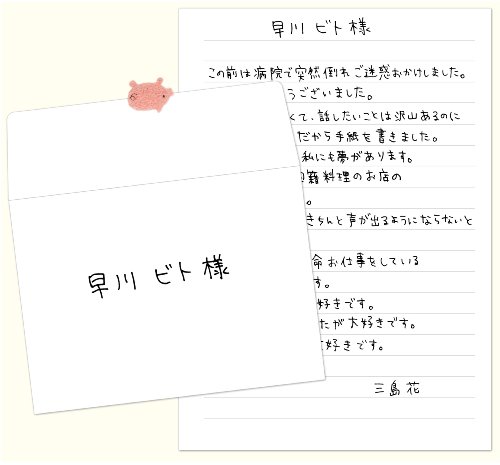 早川 ビト 様
この前は病院で突然倒れご迷惑おかけしました。
うございました。
くて、話したいことは沢山あるのに
だから手紙を書きました。
私にも夢があります。
籍料理のお店の
。
きちんと声が出るようにならないと
命お仕事をしている
す。
好きです。
たが大好きです。
大好きです。
三島 花
早川 ビト 様